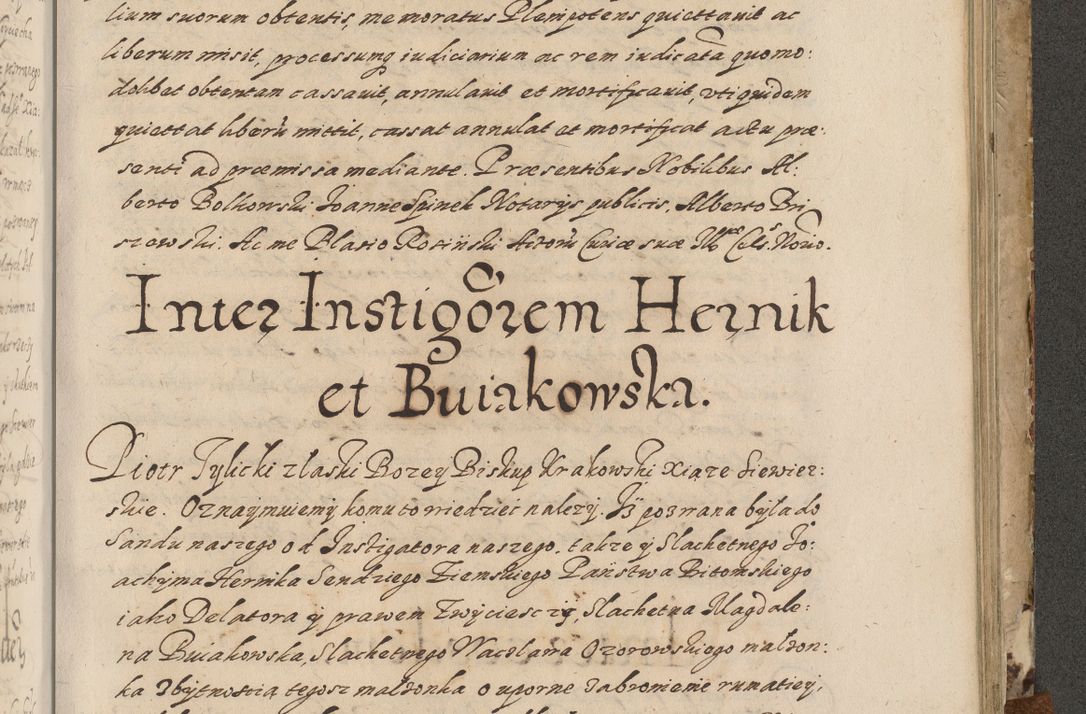 lium suorum obtentis, memoratus Plenipotens quiettauit ac
liberum misit, processumq iudiciarium ac rem iudicatã quomo:
dolibet obtentam cassauit, annulauit et mortificauit, vti quidem
quiettat liberũ mittit, cassat annulat et mortificat actu præ:
senti ad præmissa mediante. Præsentibus Nobilibus Al:
berto Bolkowski Joanne Spinek Notarys publicis, Alberto Bri
szewski. Ac me Blasio Kosiński Actorũ Curiæ suæ
Inter Instigõrem Hernik
et Buiakowska.
Piotr Tylicki z łaski Bozey Biskup Krakowski Xiąze Siewier:
skie. Oznaymuiemy komu to wiedziec nalezy. Jż pozwana była do
Sandu naszego od Instigatora naszego. takze y Slachetnego Jo:
achyma Hernika Sendziego Ziemskiego Państwa Bitomskiego
iako Delatora y prawem Zwyciesczy, Slachetna Magdale:
na Buiakowska, Slachetnego Wacława Ozorowskiego małzon:
ka z bytnoscią tegosz małzonka o uporne zabronienie rumatiey,